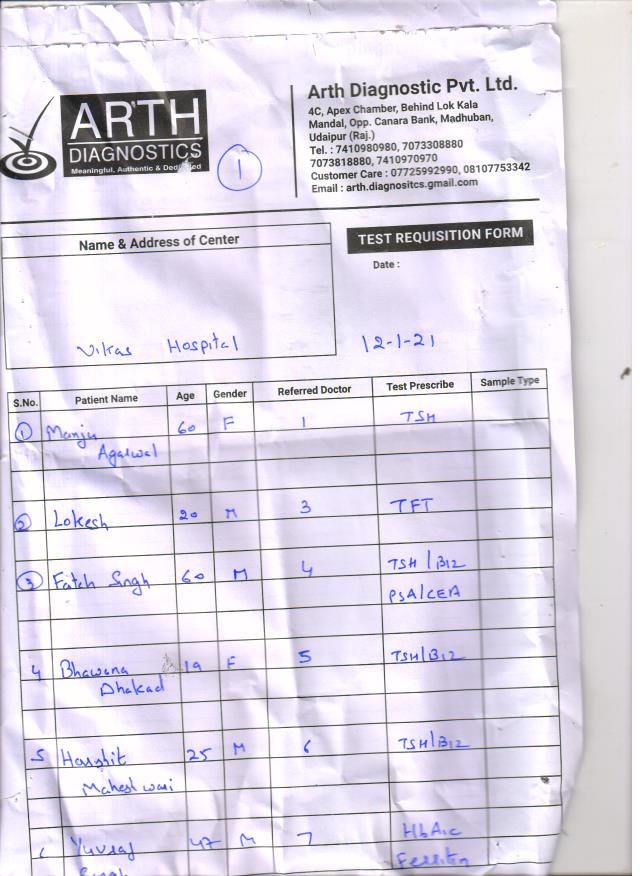 ARTH
DIAGNOSTICS
Meaningful, Authentic & Dedicated
1
Arth Diagnostic Pvt. Ltd.
4C, Apex Chamber, Behind Lok Kala
Mandal, Opp. Canara Bank, Madhuban,
Udaipur (Raj.)
Tel. : 7410980980, 7073308880
7073818880, 7410970970
Customer Care : 07725992990, 08107753342
Email : arth.diagnositcs.gmail.com
Name & Address of Center
Vikas Hospital
TEST REQUISITION FORM
Date :
12-1-21
S.No. Patient Name Age Gender Referred Doctor Test Prescribe Sample Type
1 Manju 60 F 1 TSH
Agarwal
2 Lokesh 20 M 3 TFT
3 Fateh Singh 60 M 4 TSH/B12
PSA/CEA
4 Bhawana 19 F 5 TSH/B12
Dhakad
5 Harshit 25 M 6 TSH/B12
Maheshwari
Yuvraj 47 M 7 HbA1c
Singh Ferritin